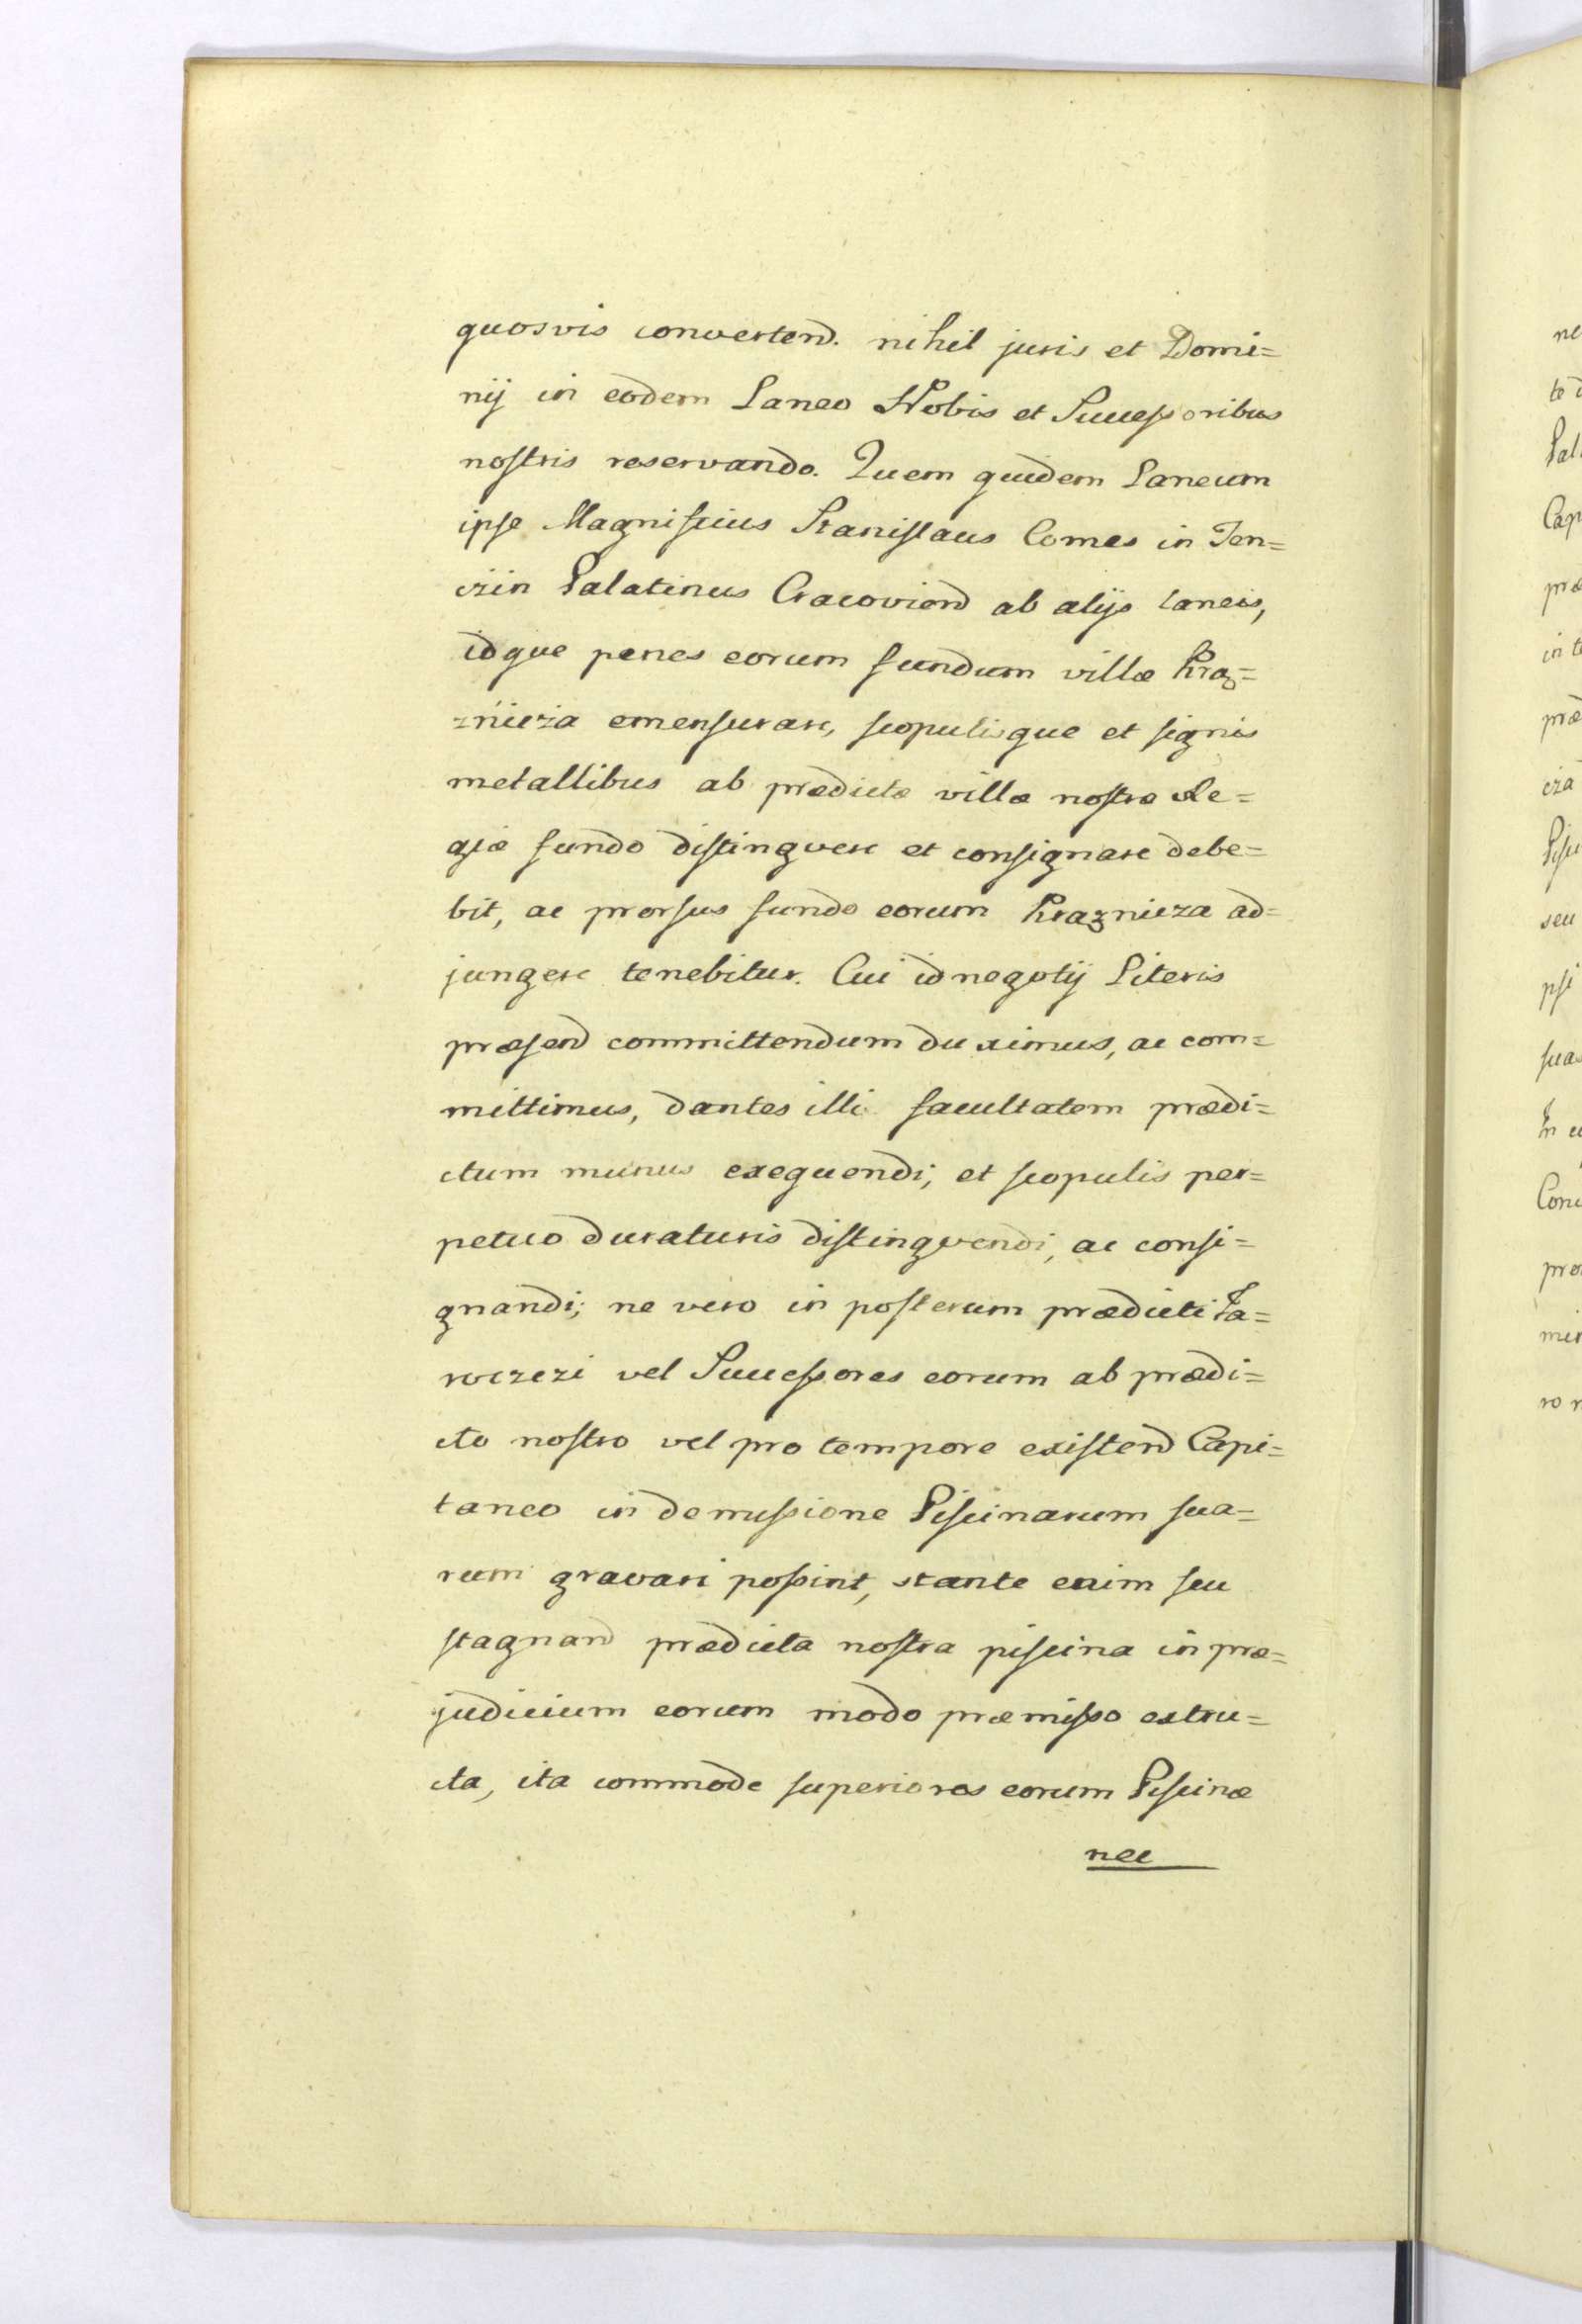 quosvis convertend. nihil juris et Domi=
nij in eodem Laneo Nobis et Successoribus
nostris reservando. Quem quidem Laneum
ipse Magnificus Stanislaus Comes in Ten=
czin Palatinus Cracoviend ab alijs laneis,
idque penes eorum fundum villæ Kraz=
znicza emensurare, scopulisque et signis
metallibus ab prædictæ villæ nostræ Re=
giæ fundo distinguere et consignare debe=
bit, ac prorsus fundo eorum Kraznicza ad=
jungere tenebitur. Cui id negotij Literis
præsend committendum duximus, ac com=
mittimus, dantes illi facultatem prædi=
ctum munus exequendi, et scopulis per=
petuo duraturis distingvendi, ac consi=
gnandi; ne vero in posterum prædicti Ja=
woczi vel Successores eorum ab prædi=
cto nostro vel pro tempore existend Capi=
taneo in demissione Piscinarum sua=
rum gravari possint, stante enim seu
stagnand prædicta nostra piscina in præ=
judicium eorum modo præmisso extru=
cta, ita commode superiores eorum Piscinæ
nec
ne
te
Pal
Cap
præ
in t
præ
cza
Pisci
seu
psi
sua
In e
Conc
pro
mis
ro n